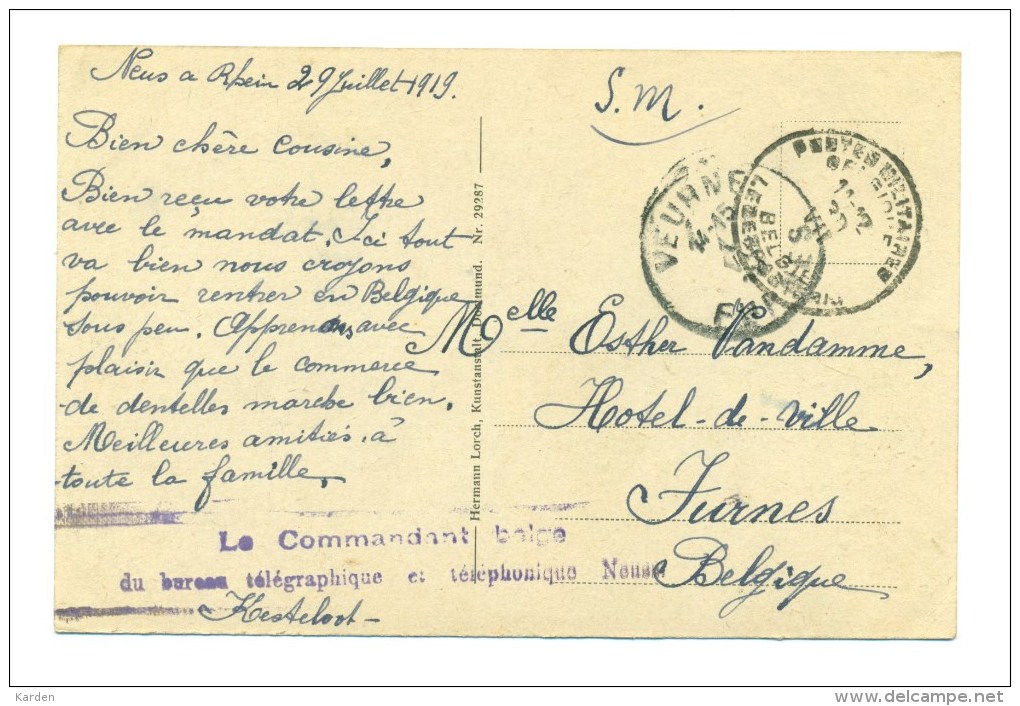 Neus a Rhein 29 Juillet 1919.
Bien chère Cousine,
Bien reçu votre lettre
avec le mandat. Ici tout
va bien nous croyons
pouvoir rentrer en Belgique
sous peu. Apprenons avec
plaisir que le commerce
de dentelles marche bien.
Meilleures amitiés à
toute la famille.
Le Commandant belge
du bureau télégraphique et téléphonique Neuss
Kesteloot
Hermann Lorch, Kunstanstalt, Dortmund. Nr. 29287
S. M.
VEURNE
14-15
POSTES MILITAIRES
BELGIQUE
Melle Esther Vandamme,
Hotel-de-Ville
Furnes
Belgique
Karden
http://www.delcampe.net